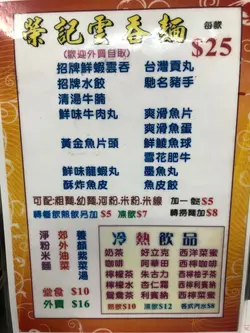 榮記雲吞麵
每款
$25
(歡迎外賣自取)
招牌鮮蝦雲吞 台灣貢丸
招牌水餃 馳名豬手
清湯牛腩
鮮味牛肉丸 爽滑魚片
爽滑魚蛋
黃金魚片頭 鮮鯪魚球
雪花肥牛
鮮味龍蝦丸 墨魚丸
酥炸魚皮 魚皮餃
可配:粗麵.幼麵.河粉.米粉.米線 加一餸$5
轉餐飲熱飲另加$5 凍飲$7 轉撈麵加$8
淨粉米麵
郊外油菜
養顏紫菜湯
堂食 $10
外賣 $16
冷熱飲品
奶茶 好立克 西洋菜蜜
咖啡 阿華田 西檸咖啡
檸檬茶 朱古力 西檸柚子茶
檸檬水 杏仁霜 西檸利賓納
鴛鴦茶 利賓納 西檸菜蜜
熱飲$10 凍飲$12 各式汽水$8